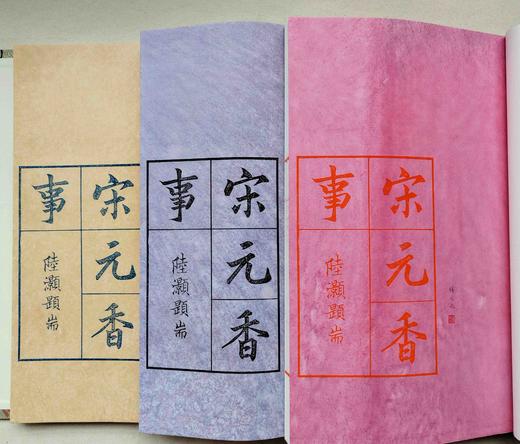 宋元香
事
陸灝題耑
宋元香
事
陸灝題耑
宋元香
事
陸灝題耑